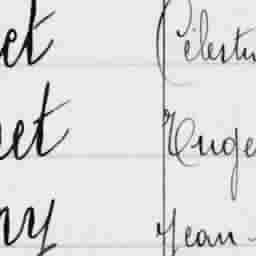 et Célestin
et Euge
ny Jean